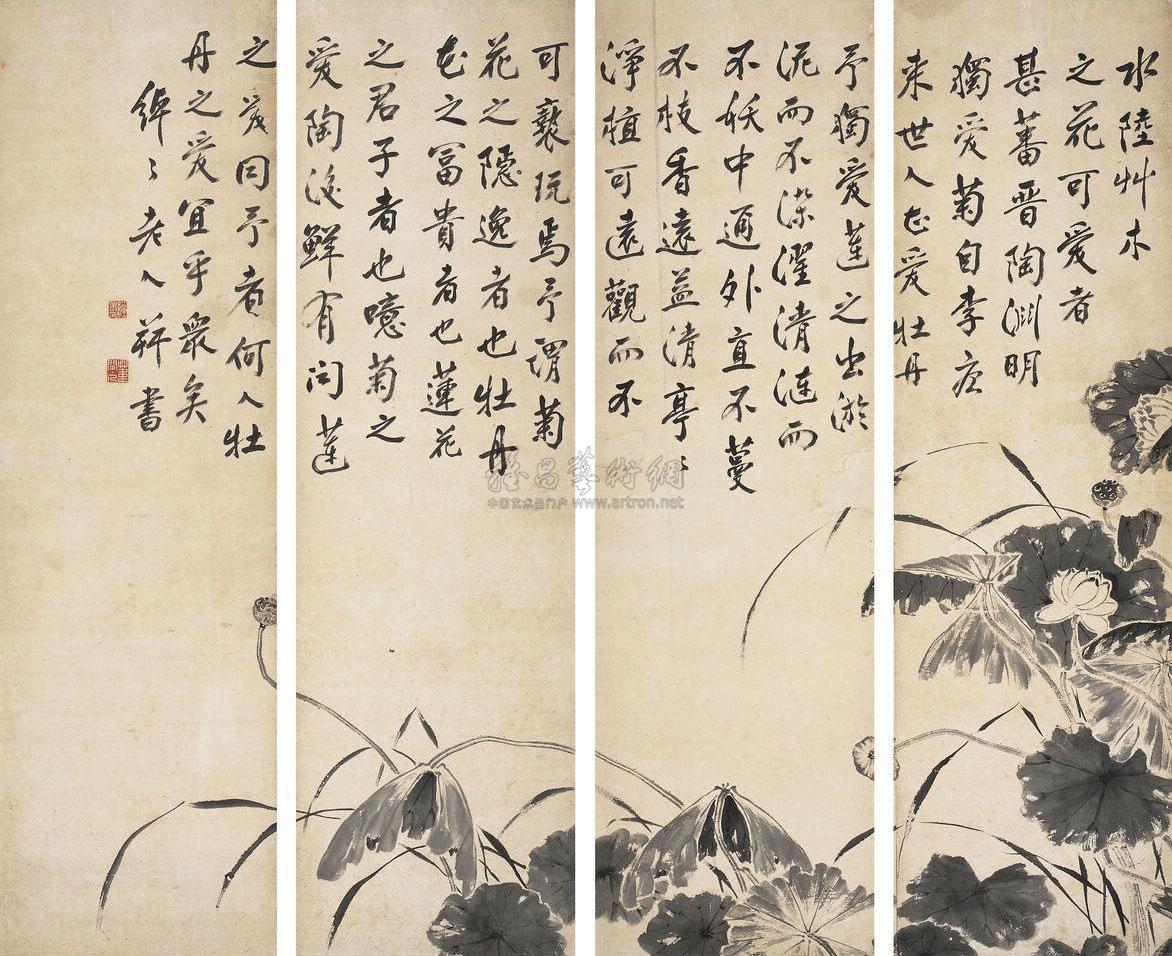 水陸艸木
之花可愛者
甚蕃晉陶淵明
獨愛菊自李唐
来世人甚愛牡丹
予獨愛蓮之出淤
泥而不染濯清漣而
不妖中通外直不蔓
不枝香遠益清亭〻
淨植可遠觀而不
可褻玩焉予謂菊
花之隱逸者也牡丹
花之富貴者也蓮花
之君子者也噫菊之
愛陶後鮮有聞蓮
之愛同予者何人牡
丹之愛宜乎衆矣
綽〻老人并書
雅昌藝術網
中国艺术品门户 www.artron.net